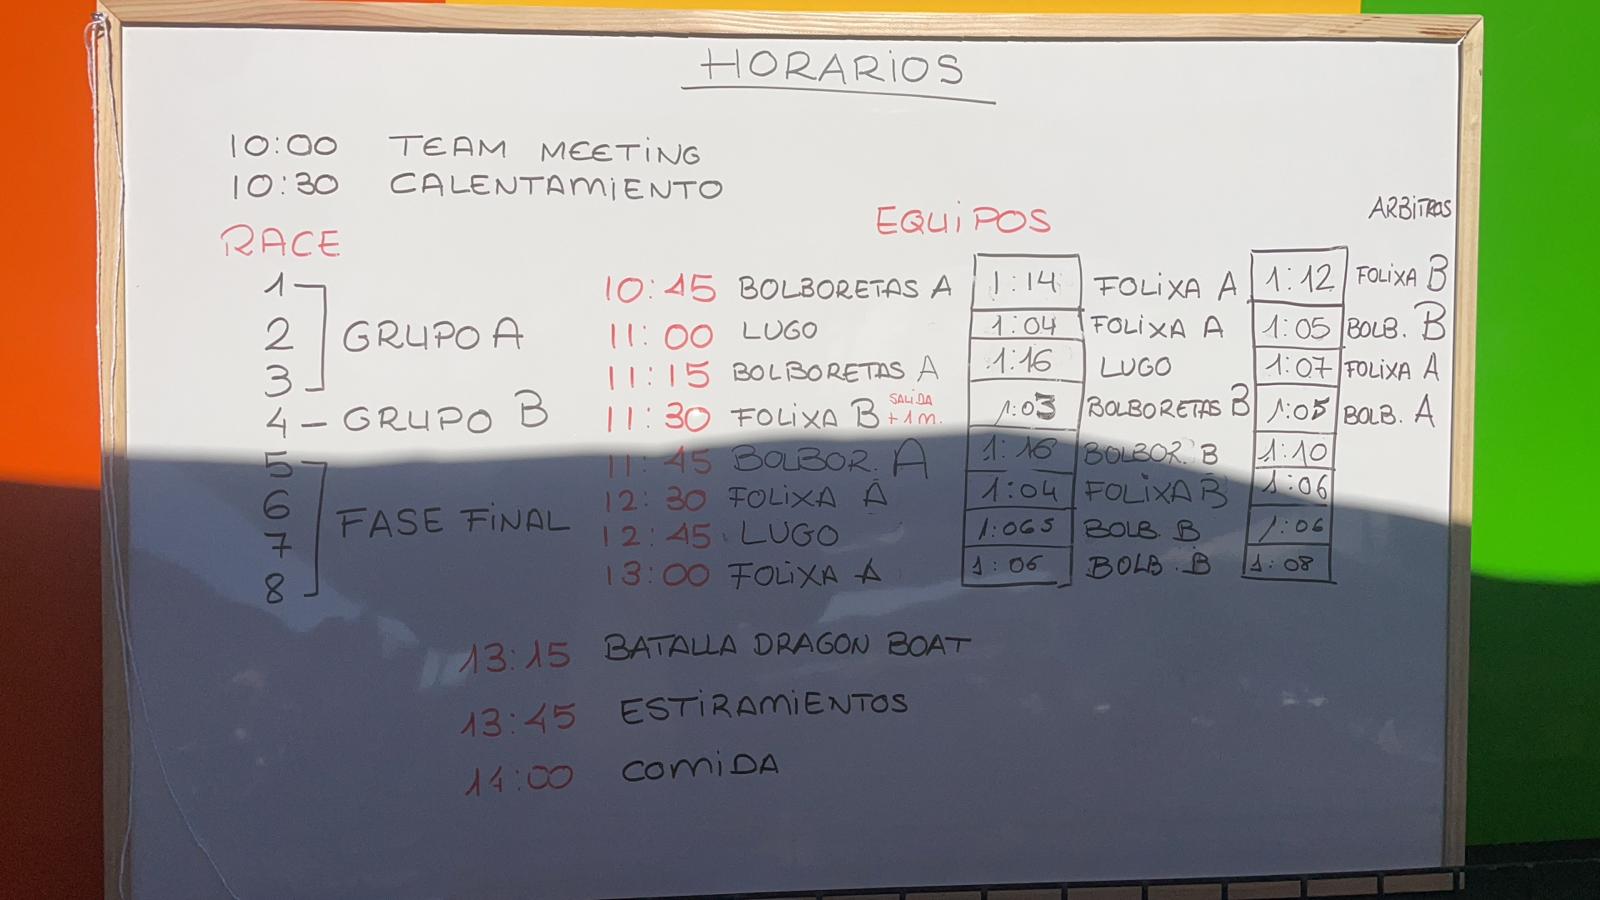 HORARIOS
10:00 TEAM MEETING
10:30 CALENTAMIENTO
ARBITROS
EQUIPOS
RACE
1 10:45 BOLBORETAS A 1:14 FOLIXA A 1:12 FOLIXA B
2 GRUPO A 11:00 LUGO 1:04 FOLIXA A 1:05 BOLB. B
3 11:15 BOLBORETAS A 1:16 LUGO 1:07 FOLIXA A
4 - GRUPO B 11:30 FOLIXA B SALIDA +1m. 1:03 BOLBORETAS B 1:05 BOLB. A
5 11:45 BOLBOR. A 1:16 BOLBOR. B 1:10
6 FASE FINAL 12:30 FOLIXA A 1:04 FOLIXA B 1:06
7 12:45 LUGO 1:065 BOLB. B 1:06
8 13:00 FOLIXA A 1:06 BOLB. B 1:08
13:15 BATALLA DRAGON BOAT
13:45 ESTIRAMIENTOS
14:00 COMIDA